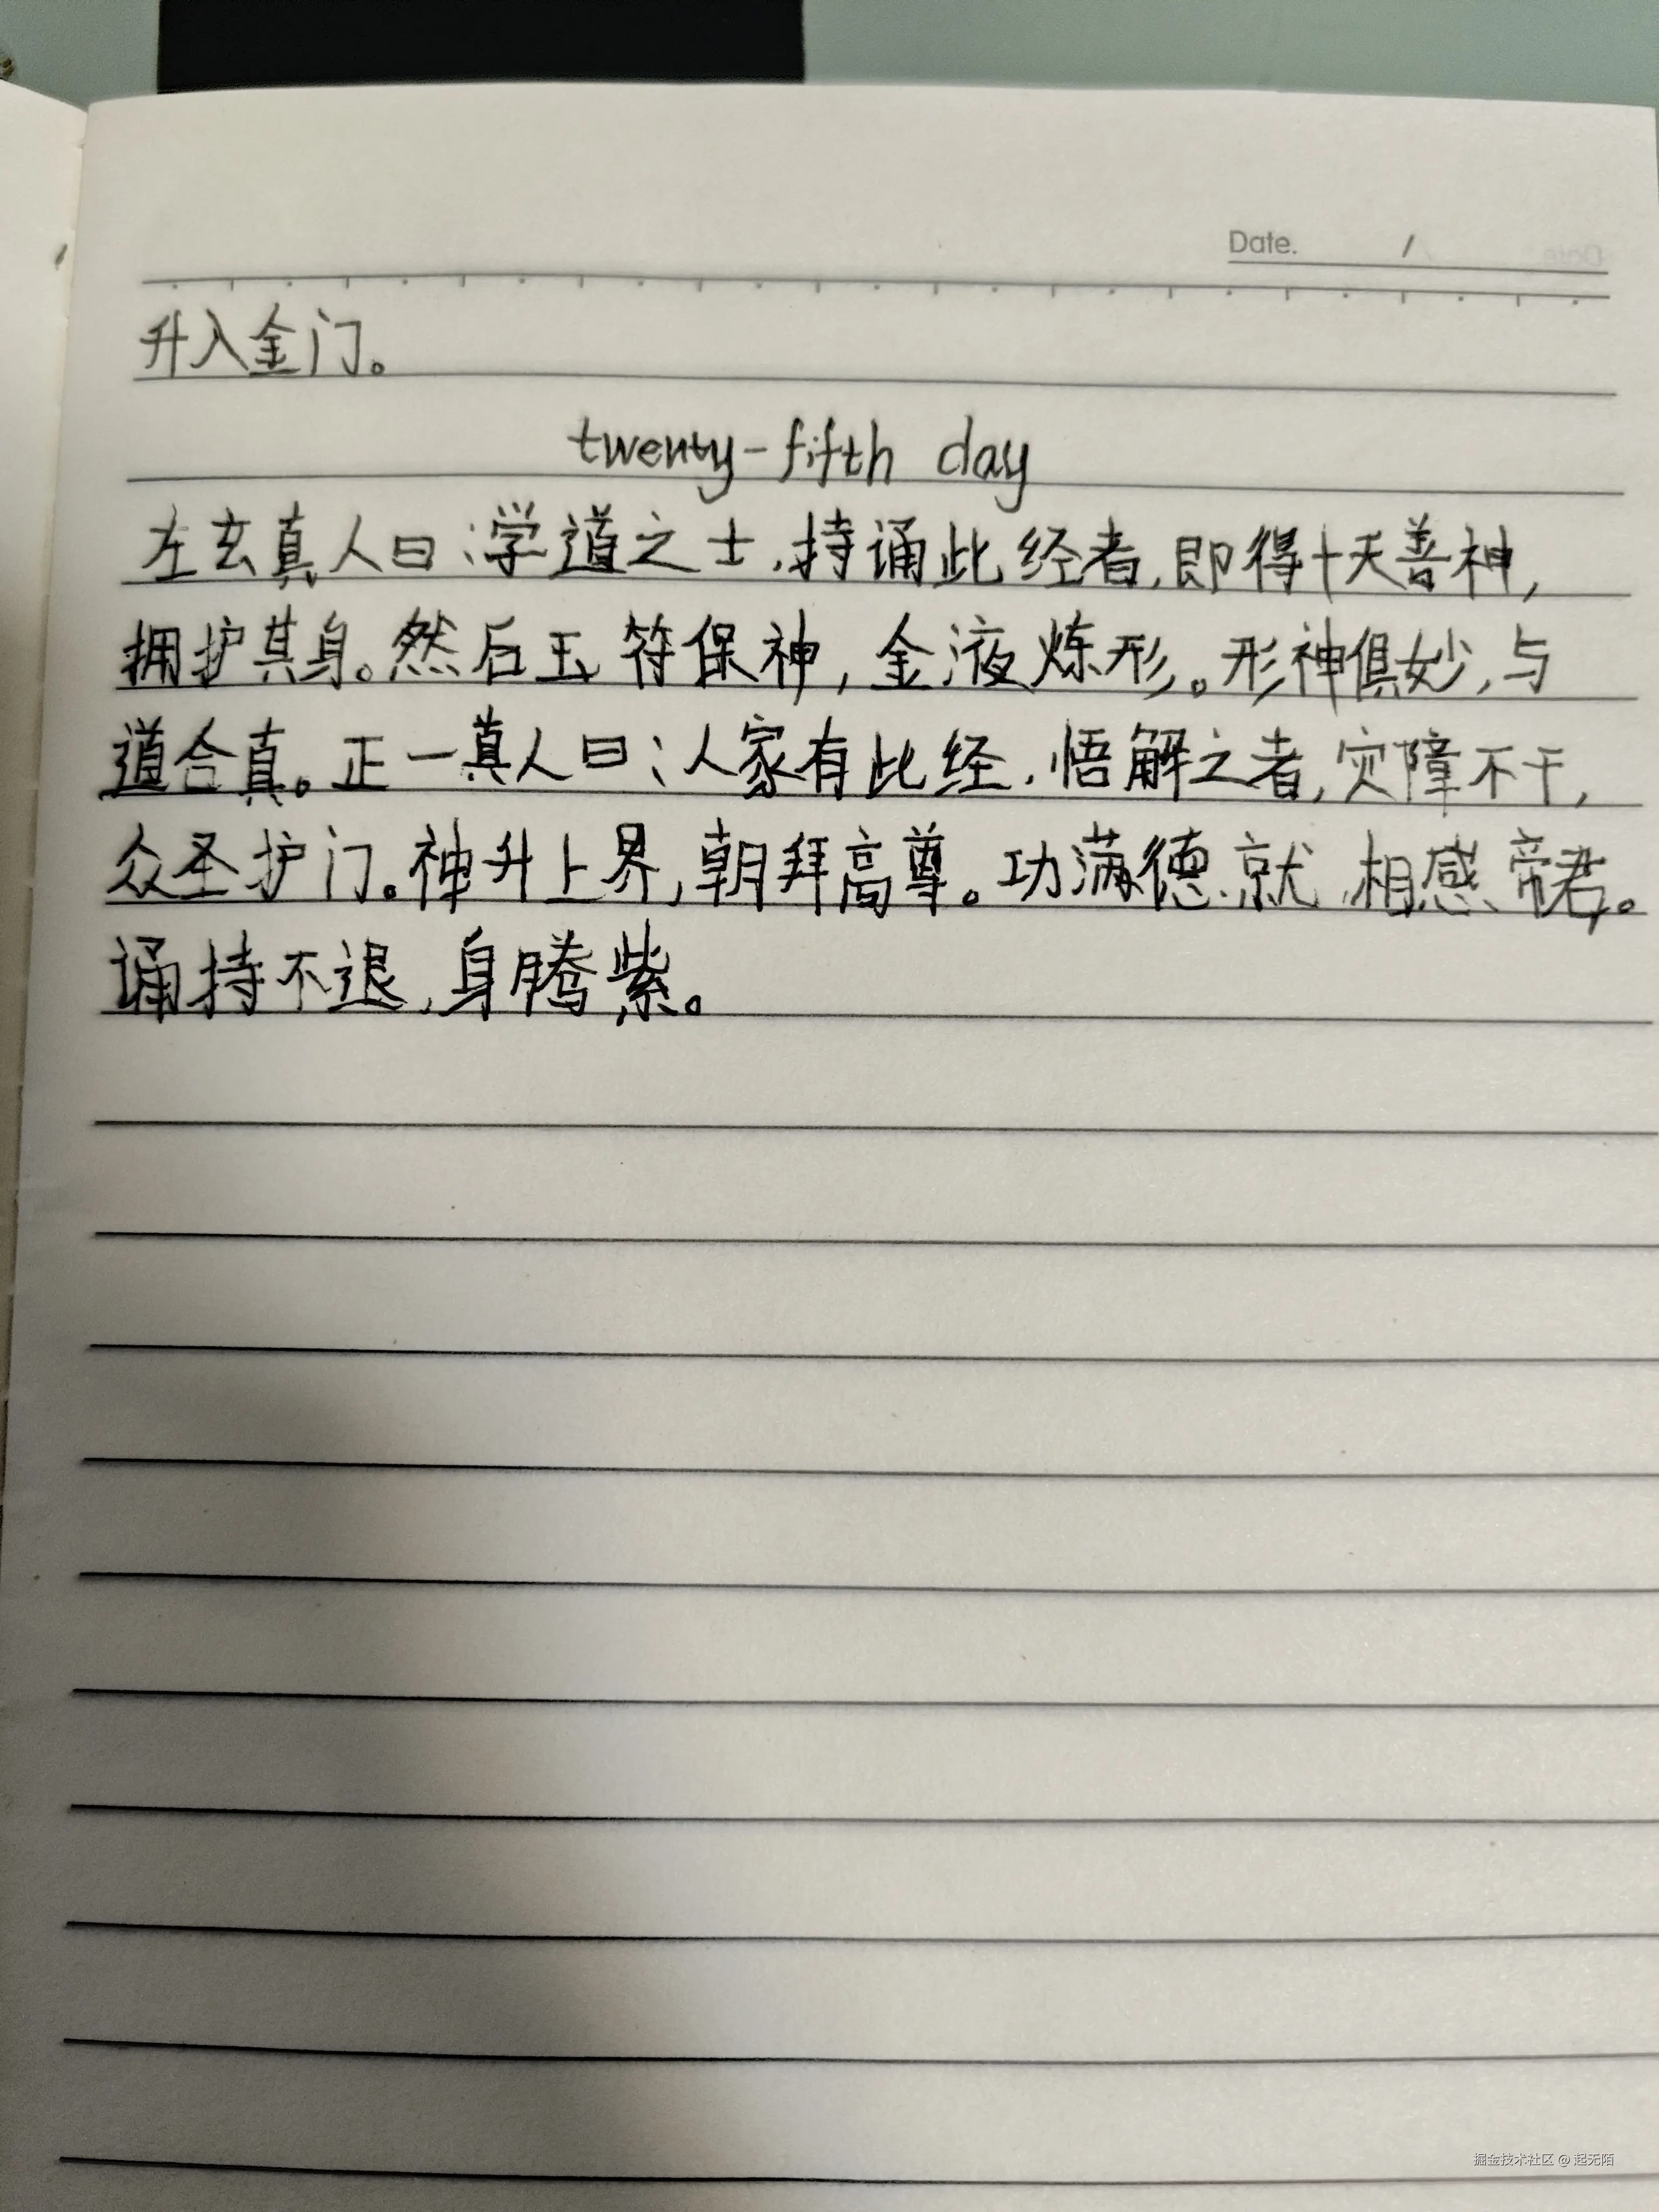 Date. /
升入金门。
twenty-fifth day
左玄真人曰:学道之士,持诵此经者,即得十天善神,
拥护其身。然后玉符保神,金液炼形。形神俱妙,与
道合真。正一真人曰:人家有此经,悟解之者,灾障不干,
众圣护门。神升上界,朝拜高尊。功满德就,相感帝君。
诵持不退,身腾紫。
掘金技术社区 @ 起无陌